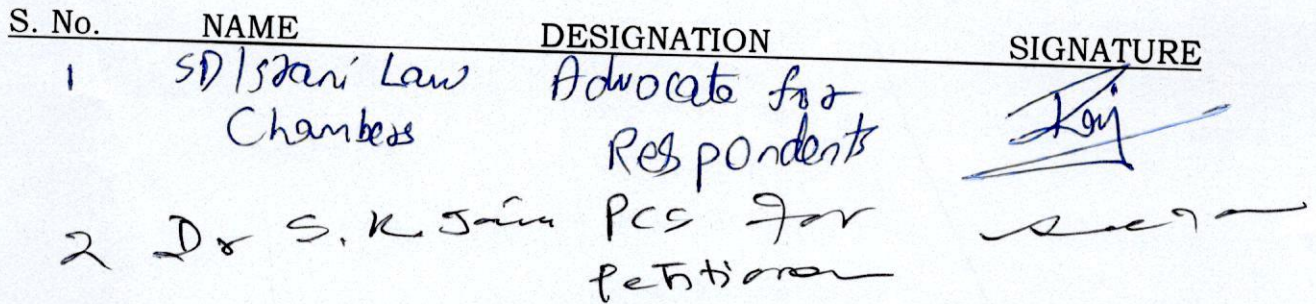 S. No. NAME DESIGNATION SIGNATURE
1 SD Israni Law Advocate for
Chambers Respondents
2 Dr S. K. Jain PCS for
Petitioner